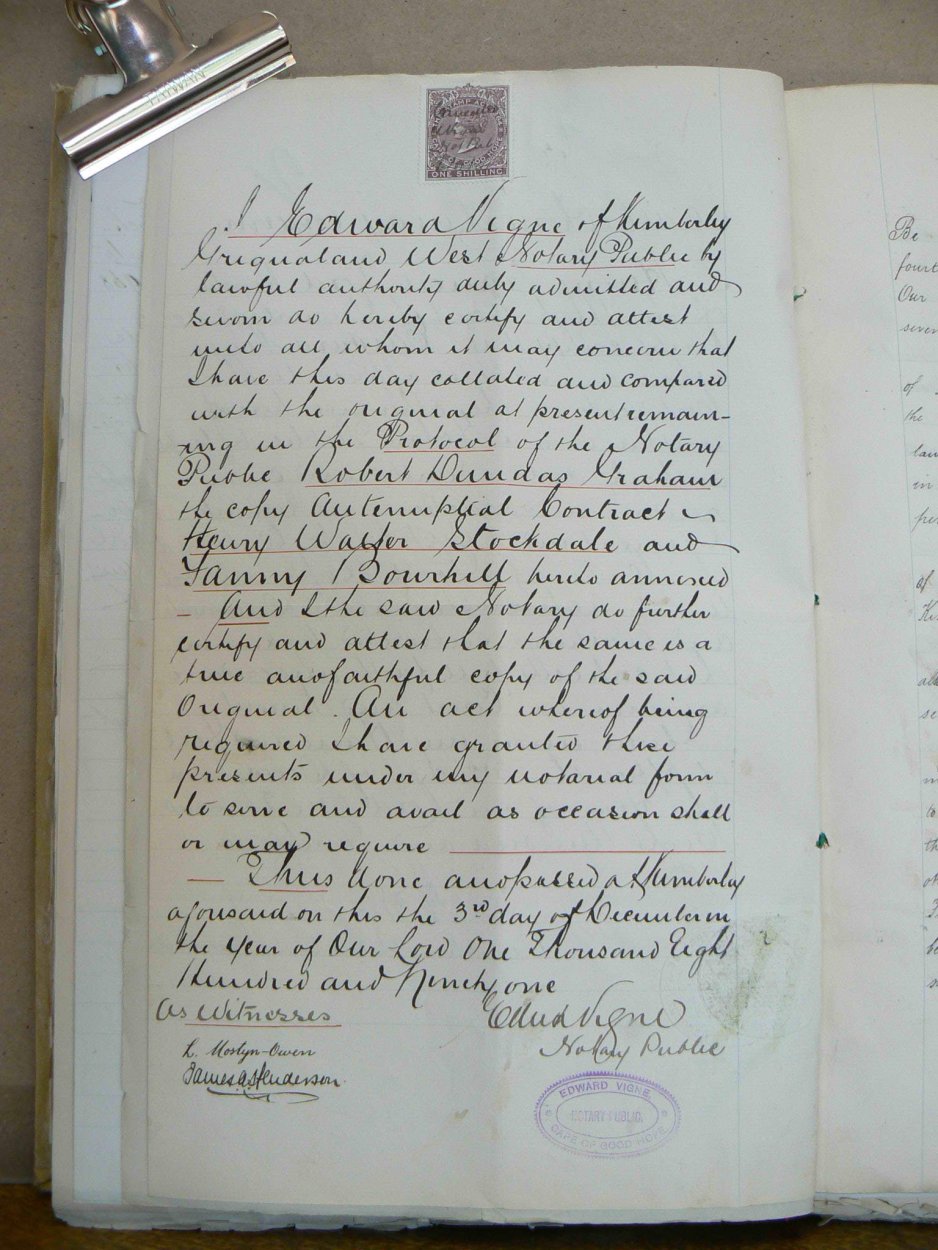 ONE SHILLING
I Edward Vigne of Kimberley
Griqualand West Notary Public by
lawful authority duly admitted and
sworn do hereby certify and attest
unto all whom it may concern that
I have this day collated and compared
with the original at present remain-
ing in the Protocol of the Notary
Public Robert Dundas Graham
the copy Antenuptial Contract
Henry Walter Stockdale and
Fanny Bourhill hereto annexed
— And I the said Notary do further
certify and attest that the same is a
true and faithful copy of the said
Original. An act whereof being
required I have granted these
presents under my notarial form
to serve and avail as occasion shall
or may require
— Thus done and passed at Kimberley
aforesaid on this the 3rd day of December in
the Year of Our Lord One Thousand Eight
Hundred and Ninety one
As Witnesses
Edwd Vigne
Notary Public
L. Mostyn-Owen
James A. Henderson
EDWARD VIGNE
NOTARY PUBLIC.
CAPE OF GOOD HOPE
Be
fourt
Our
seven
of
the
law
in
of
to
th